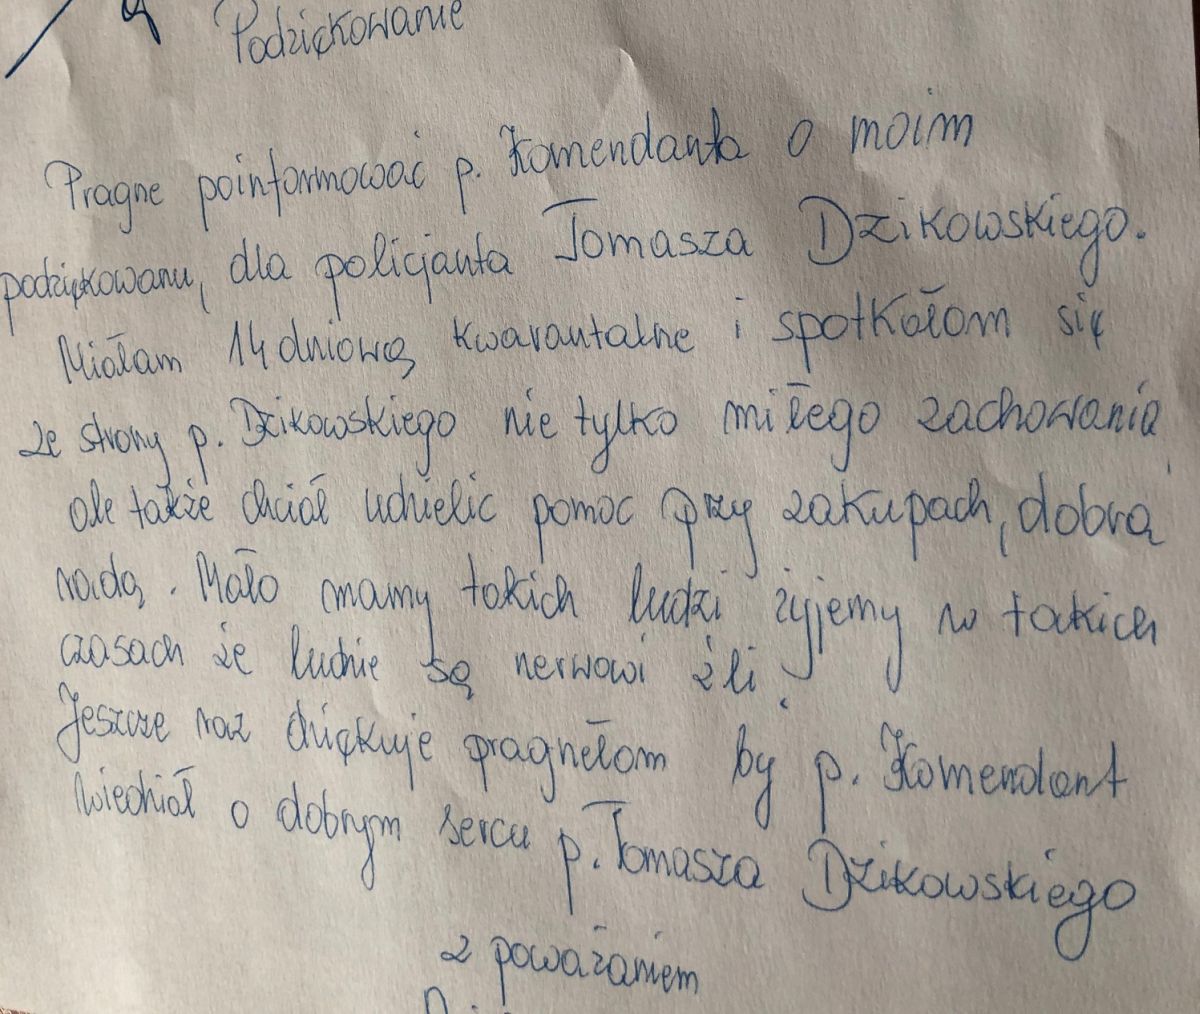 Podziękowanie
Pragne poinformować p. Komendanta o moim
podziękowaniu, dla policjanta Tomasza Dzikowskiego.
Miałam 14 dniową kwarantalne i spotkałam się
ze strony p. Dzikowskiego nie tylko miłego zachowania
ale także chciał udzielic pomoc przy zakupach, dobrą
radą. Mało mamy takich ludzi żyjemy w takich
czasach że ludzie są nerwowi źli.
Jeszcze raz dziękuje pragnełam by p. Komendant
wiedział o dobrym sercu p. Tomasza Dzikowskiego
z poważaniem